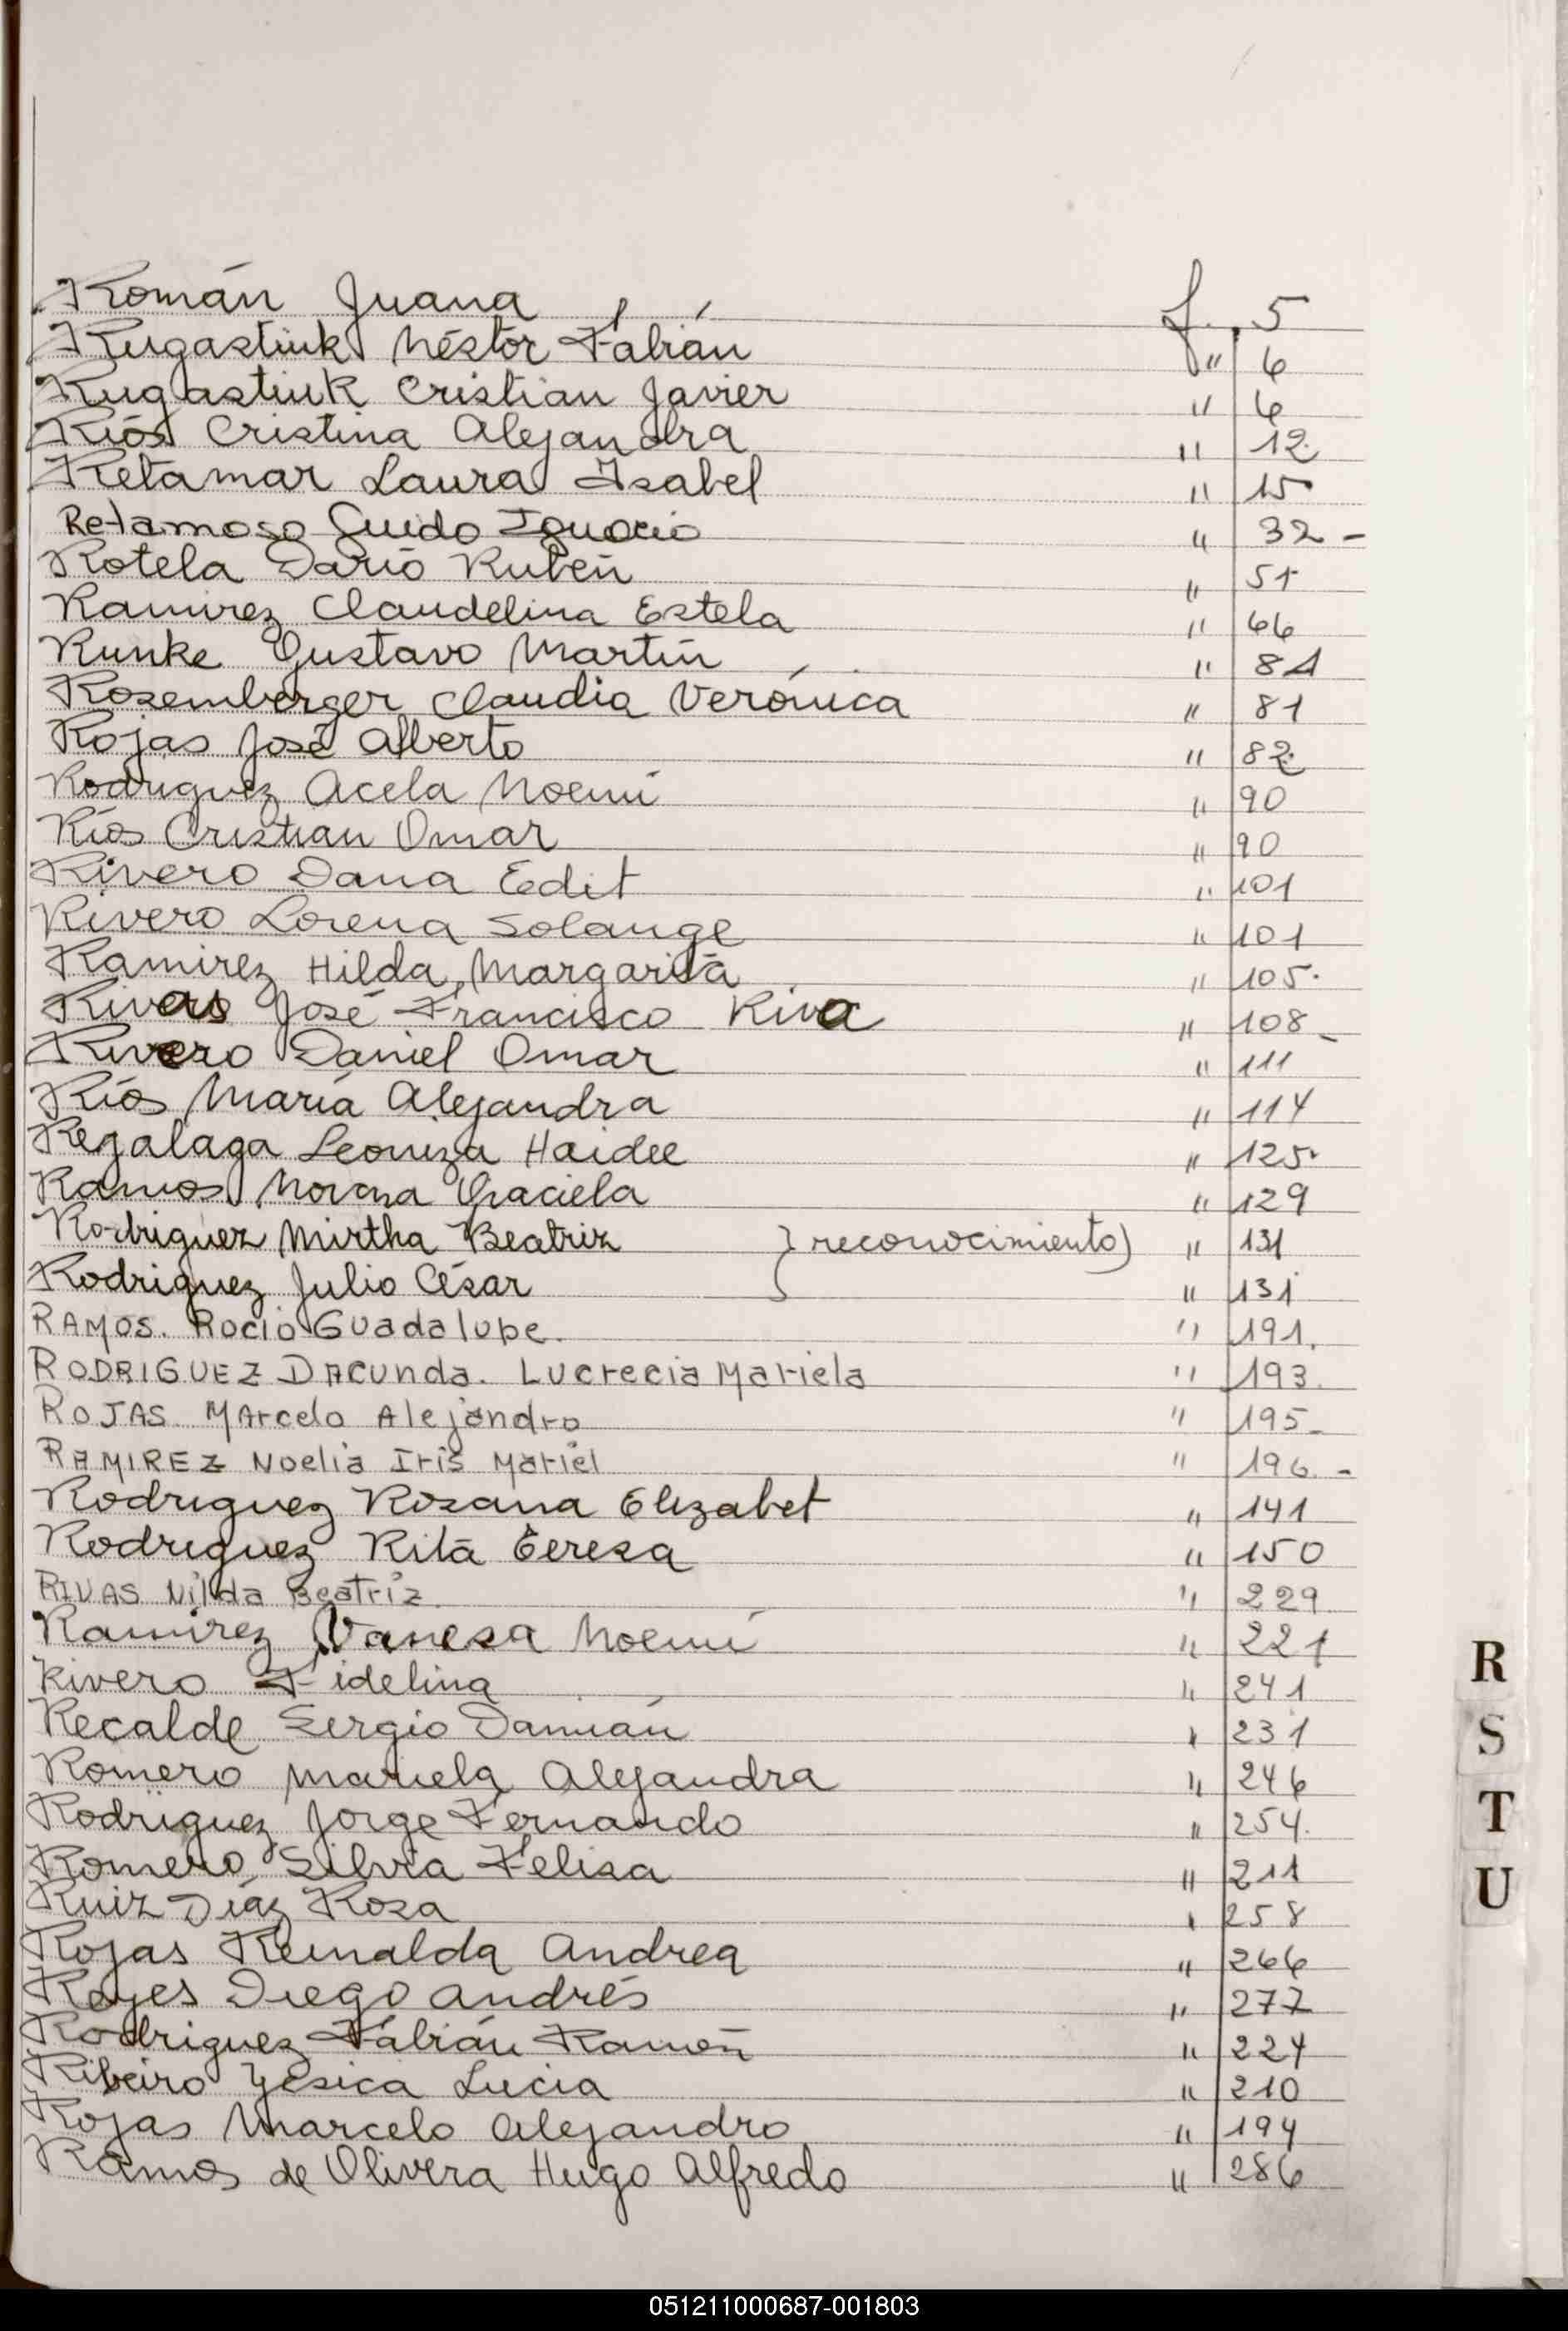 Román Juana f. 5
Rugastiuk Néstor Fabián " 6
Rugastiuk Cristian Javier " 6
Ríos Cristina Alejandra " 12
Retamar Laura Isabel " 15
Retamoso Guido Ignacio " 32 -
Rotela Darío Rubén " 51
Ramirez Claudelina Estela " 66
Runke Gustavo Martín " 81
Rosemberger Claudia Verónica " 81
Rojas José Alberto " 82
Rodriguez Acela Noemí " 90
Ríos Cristian Omar " 90
Rivero Dana Edit " 101
Rivero Lorena Solange " 101
Ramirez Hilda Margarita " 105.
Rivas José Francisco Riva " 108 -
Rivero Daniel Omar " 111
Ríos María Alejandra " 114
Regalaga Leoniza Haidee " 125.
Ramos Morena Graciela " 129
Rodriguez Mirtha Beatriz } reconocimiento) " 131
Rodriguez Julio César " 131
RAMOS. Rocio Guadalupe. " 191.
RODRIGUEZ DACunda. Lucrecia Mariela " 193.
ROJAS. MArcelo Alejandro " 195 -
RAMIREZ Noelia Iris Mariel " 196. -
Rodriguez Rosana Elizabet " 141
Rodriguez Rita Teresa " 150
RIVAS Nilda Beatriz. " 229
Ramirez Vanesa Noemí " 221
Rivero Fidelina " 241
Recalde Sergio Damián " 231
Romero Mariela Alejandra " 246
Rodriguez Jorge Fernando " 254.
Romero Silvia Felisa " 211
Ruiz Díaz Rosa " 258
Rojas Reinalda Andrea " 266
Reyes Diego Andrés " 277
Rodriguez Fabián Ramón " 224
Ribeiro Yesica Lucia " 210
Rojas Marcelo Alejandro " 194
Ramos de Olivera Hugo Alfredo " 286
R
S
T
U
051211000687-001803